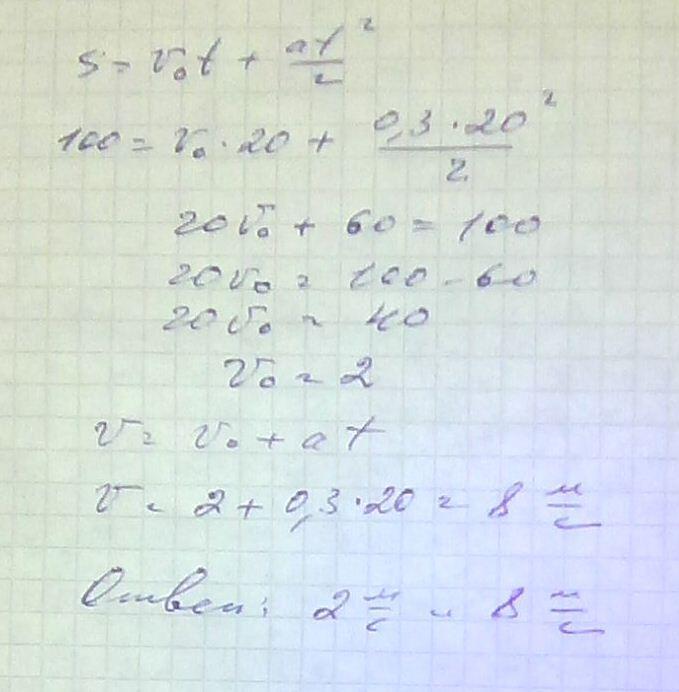 S = v₀t + at²/2
100 = v₀ · 20 + 0,3 · 20²/2
20v₀ + 60 = 100
20v₀ = 100 - 60
20v₀ = 40
v₀ = 2
v = v₀ + at
v = 2 + 0,3 · 20 = 8 м/с
Ответ: 2 м/с и 8 м/с